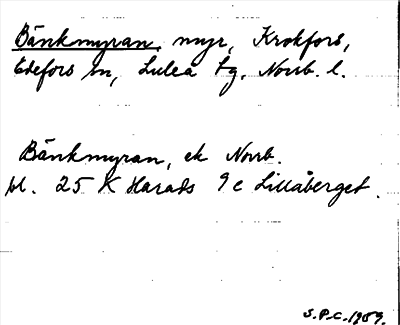 Bänkmyran, myr, Krokfors,
Edefors sn, Luleå tg, Norrb. l.
Bänkmyran, ek Norrb.
bl. 25 K Harads 9 c Lillåberget.
S.P.C. 1959.